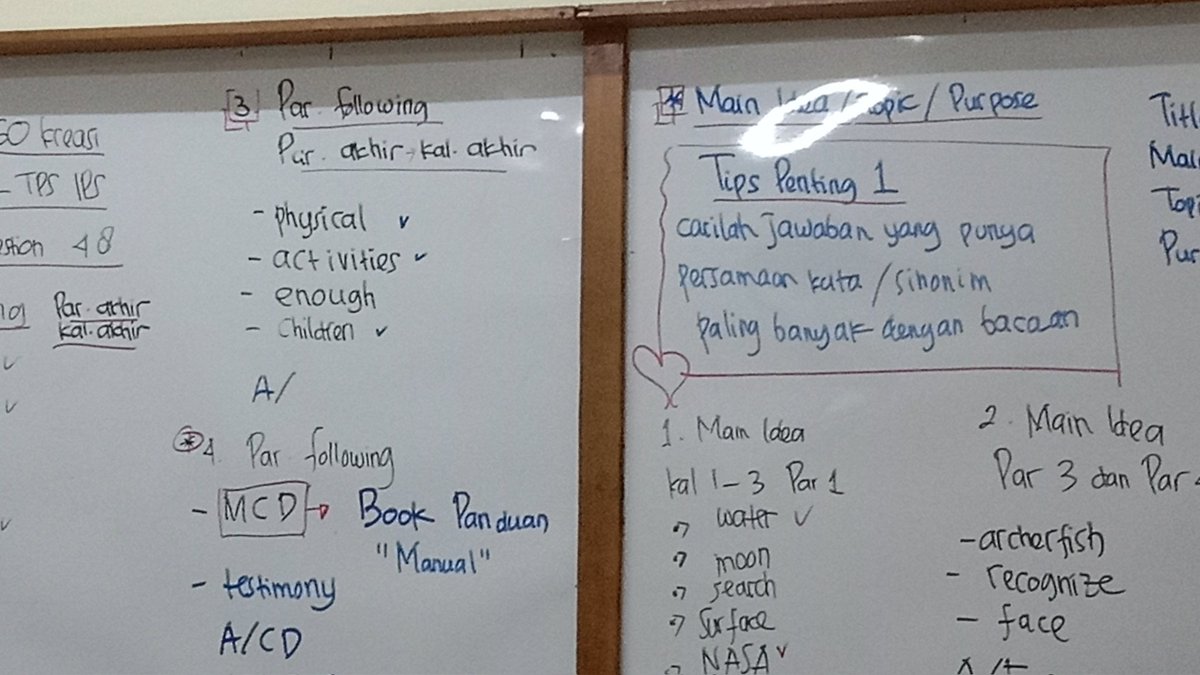 kreasi
- TPS IPS
48
Par. akhir
kal. akhir
[3] Par. following
Par. akhir, kal. akhir
- physical ✓
- activities ✓
- enough
- Children ✓
A/
4. Par following
- MCD → Book Panduan
"Manual"
- testimony
A/CD
Main Idea / Topic / Purpose
Tips Penting 1
carilah jawaban yang punya
persamaan kata / sinonim
paling banyak dengan bacaan
1. Main Idea
kal 1-3 Par 1
water ✓
moon
search
Surface
NASA ✓
2. Main Idea
Par 3 dan Par
- archerfish
- recognize
- face